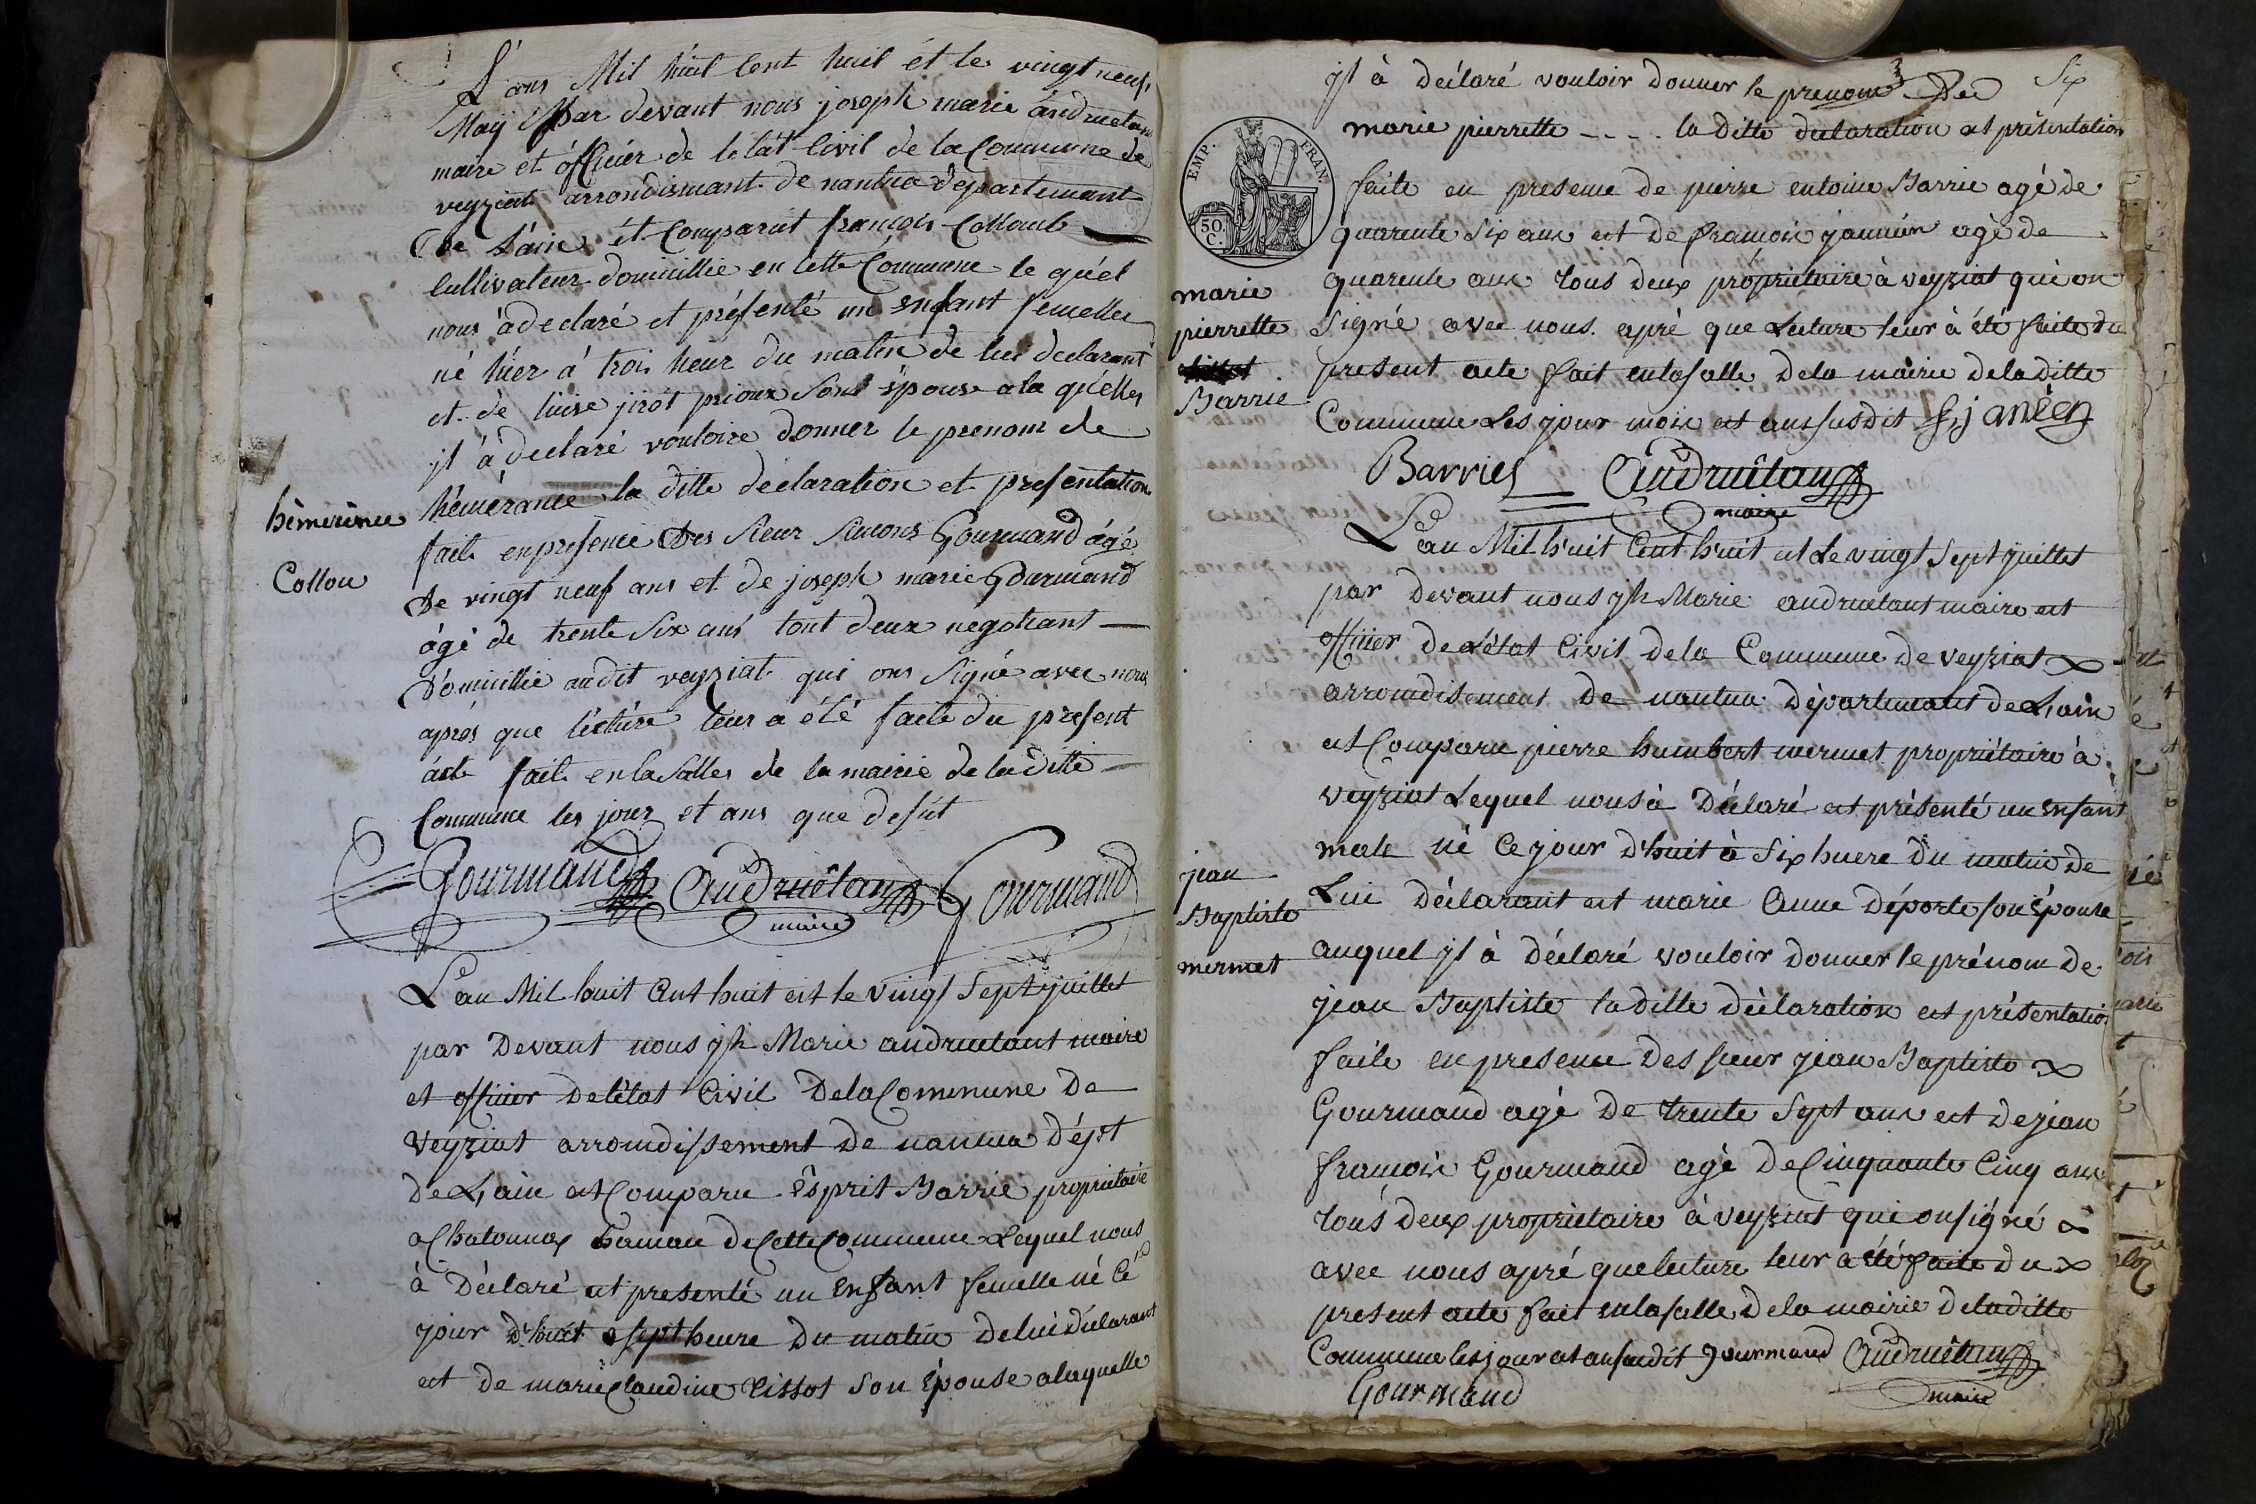 L'ans Mil huit Cent huit ét le vingt neuf
Maÿ Par devant nous joseph marie andruetan
maire et ófficier de le tát Civil de la Commune de
veyziat arrondismant de nantua departemant
De Láin ét Comparut francois Collomb
Cultivateur domicillié en cette Commune le quél
nous á declaré et présenté un enfant femelle
né hier á trois heur du matin de lui declarant
et de luise jirot prioux Sons épouse a la quélle
jl á declaré vouloire donner le prenom de
hémérance la ditte déclaration et présentation
hémérence
faite en présence Des sieur Simons Gourmand ágé
Collou
De vingt neuf ans et de joseph marie Gourmand
ágé de trente Six ans tout deux negotians
Domicillié audit veyziat qui ons Signé avec nous
aprés que lécture leur a été faite du présent
ácte fait en la Salle de la mairie de la ditte
Commune les jour et ans que desut
Gourmand Andruétan Gourmand
maire
L'an Mil huit Cent huit est le vingt Sept juillet
par Devant nous jph Marie andruetant maire
et officier de létat Civil De la Commune De
Veyziat arrondissement De nantua Dépt
De L'ain et Comparu Esprit Barrie propriétaire
a Chatonnax hamau de Cette Commune Lequel nous
à Déclaré et presenté un Enfant femelle né Cé
jour D'huit a Sept heure Du matin De lui déclarant
et de marie Claudine tissot Son Épouse a laquelle
Six
jl à déclaré vouloir Donner le prenom De
marie pierrette - - - . la Ditte declaration et présentation
EMP. FRAN.
50. C.
faite en presence de pierre entoine Barrie agé de
quarente Six ans et De francois jannin agè de
marie
quarente ans tous deux propriétaire à veyziat qui on
pierrette
Signé avec nous. apré que Lecture leur à été faite du
present acte fait en la salle De la mairie de la Ditte
Barrie
Commune Les jour mois et ans susdit f j anèen
Barrier Andruêtan
maire
L'an Mil huit Cent huit et Le vingt Sept juillet
par devant nous jph Marie andruetant maire et
officier De L'état Civil De la Commune De Veyziat
arrondisement De nantua Départemant De L'ain
et Comparu pierre humbert mermet propriétaire à
veyziat Lequel nous à Déclaré et présenté un Enfant
male né Ce jour D'huit à Six huere Du matin De
jean
Lui Déclarant et marie Anne Déporte son Épouse
Baptiste
auquel jl à déclaré vouloir Donner le prénom De
mermet
jean Baptiste la Ditte Déclaration et présentation
faite en presence Des sieur jean Baptiste
Gourmand agé De trente Sept ans et De jean
francois Gourmand agé De Cinquante Cinq ans
tous Deux propriétaire à veyziat qui on signé
avec nous apré que lecture leur a été faite Du
present acte fait en la salle De la mairie De la ditte
Commune les jour et an sudit gourmand Andruêtan
Gourmand
maire